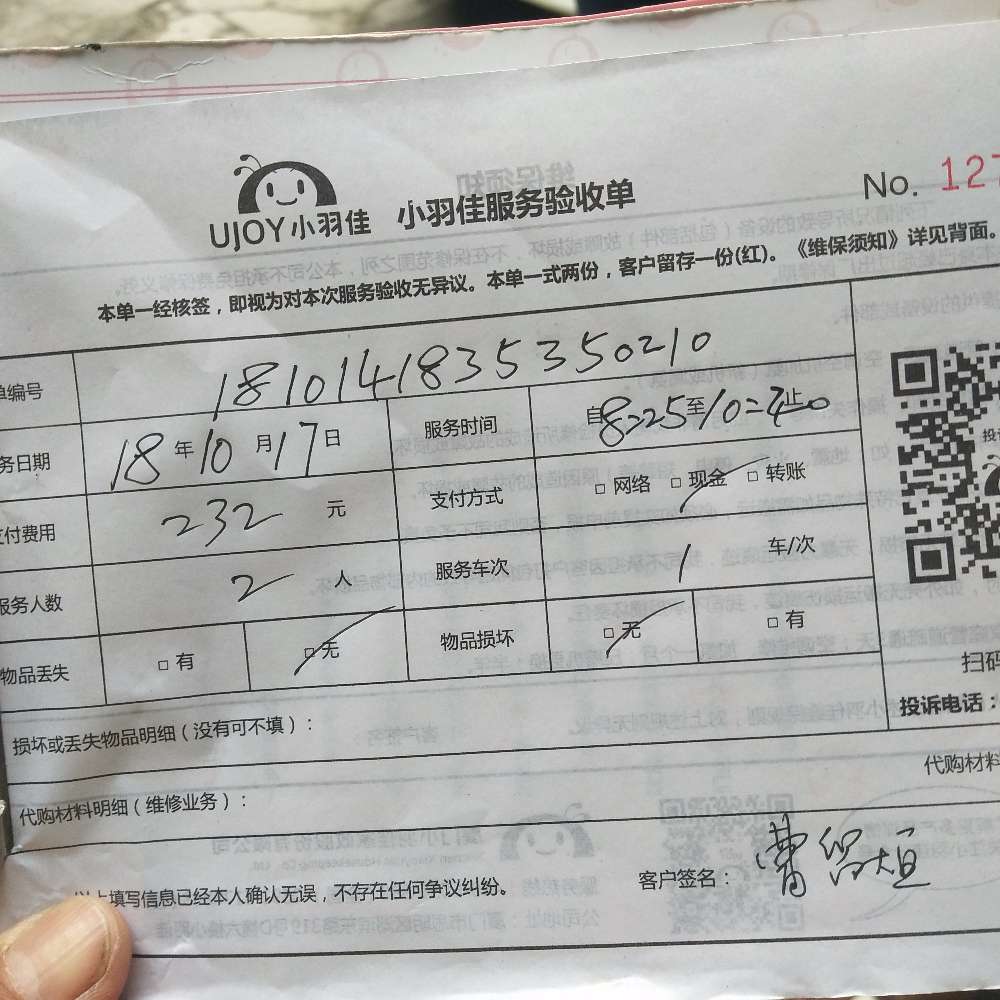 UJOY小羽佳 小羽佳服务验收单 No. 127
本单一经核签，即视为对本次服务验收无异议。本单一式两份，客户留存一份(红)。《维保须知》详见背面。
单编号 1810141835350210
务日期 18年10月17日 服务时间 自8:25至10:40止
支付费用 232 元 支付方式 □ 网络 □ 现金 □ 转账
服务人数 2 人 服务车次 1 车/次
物品丢失 □ 有 □ 无 物品损坏 □ 无 □ 有
扫码
投诉电话：
损坏或丢失物品明细（没有可不填）：
代购材料
代购材料明细（维修业务）：
以上填写信息已经本人确认无误，不存在任何争议纠纷。 客户签名：曹